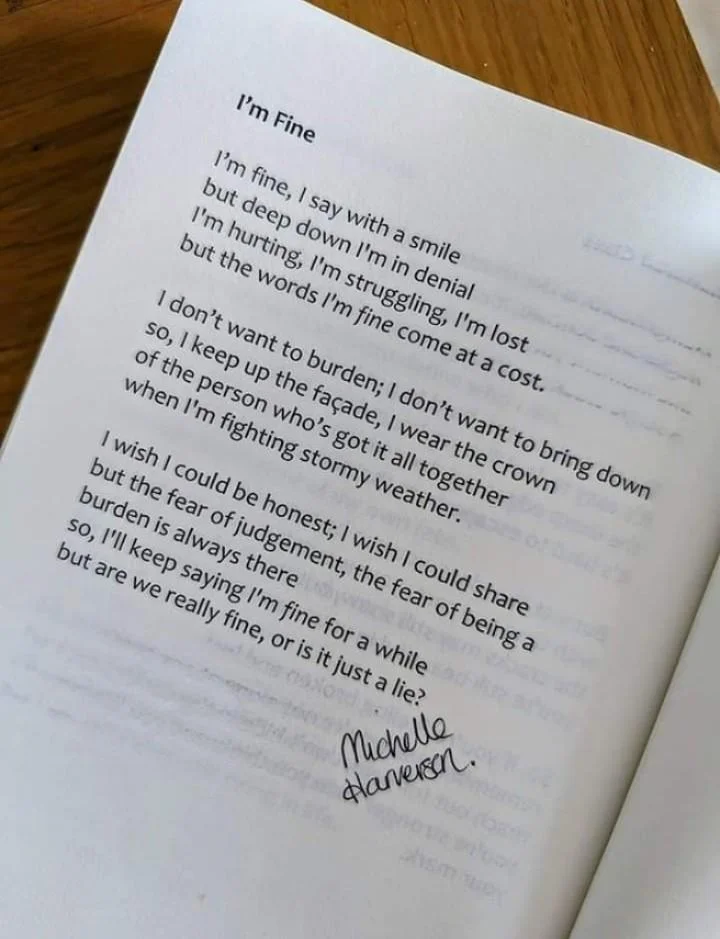 I'm Fine
I'm fine, I say with a smile
but deep down I'm in denial
I'm hurting, I'm struggling, I'm lost
but the words I'm fine come at a cost.
I don't want to burden; I don't want to bring down
so, I keep up the façade, I wear the crown
of the person who's got it all together
when I'm fighting stormy weather.
I wish I could be honest; I wish I could share
but the fear of judgement, the fear of being a
burden is always there
so, I'll keep saying I'm fine for a while
but are we really fine, or is it just a lie?
Michelle
Harverson.